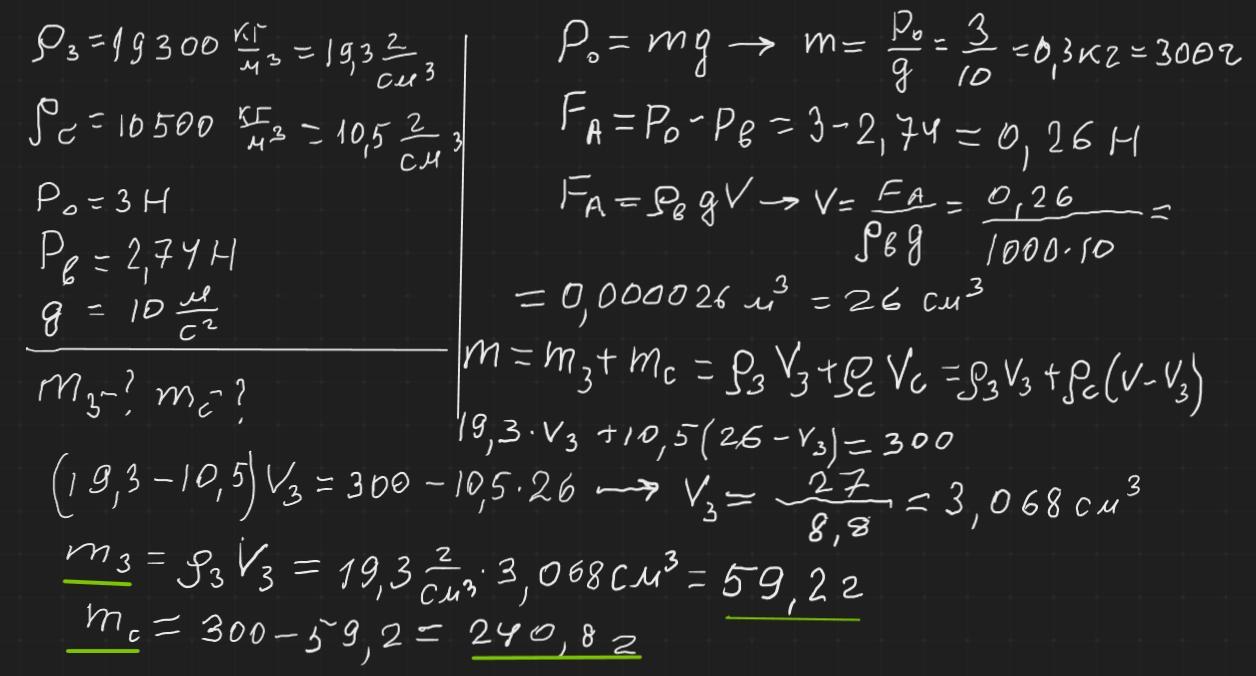 ρз = 19300 кг/м³ = 19,3 г/см³
ρс = 10500 кг/м³ = 10,5 г/см³
P₀ = 3 Н
Pв = 2,74 Н
g = 10 м/с²
mз-? mс-?
P₀ = mg → m = P₀/g = 3/10 = 0,3 кг = 300 г
FА = P₀ - Pв = 3 - 2,74 = 0,26 Н
FА = ρв g V → V = FА/ρв g = 0,26/1000·10 =
= 0,000026 м³ = 26 см³
m = mз + mс = ρз Vз + ρс Vс = ρз Vз + ρс (V - Vз)
19,3 · Vз + 10,5 (26 - Vз) = 300
(19,3 - 10,5) Vз = 300 - 10,5 · 26 → Vз = 27/8,8 = 3,068 см³
mз = ρз Vз = 19,3 г/см³ · 3,068 см³ = 59,2 г
mс = 300 - 59,2 = 240,8 г